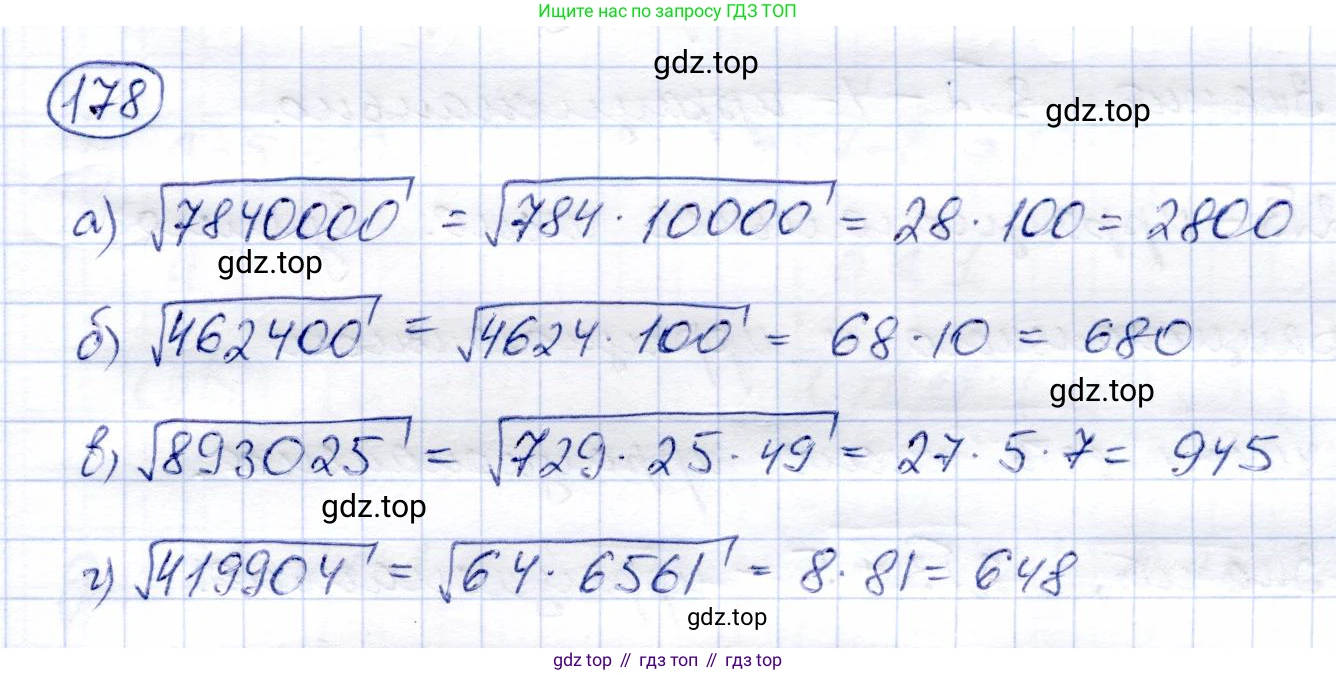 Ищите нас по запросу ГДЗ ТОП
gdz.top
178
gdz.top
а) √7840000 = √784 · 10000 = 28 · 100 = 2800
gdz.top
б) √462400 = √4624 · 100 = 68 · 10 = 680
gdz.top
в) √893025 = √729 · 25 · 49 = 27 · 5 · 7 = 945
gdz.top
г) √419904 = √64 · 6561 = 8 · 81 = 648
gdz.top
gdz top // гдз топ // гдз top